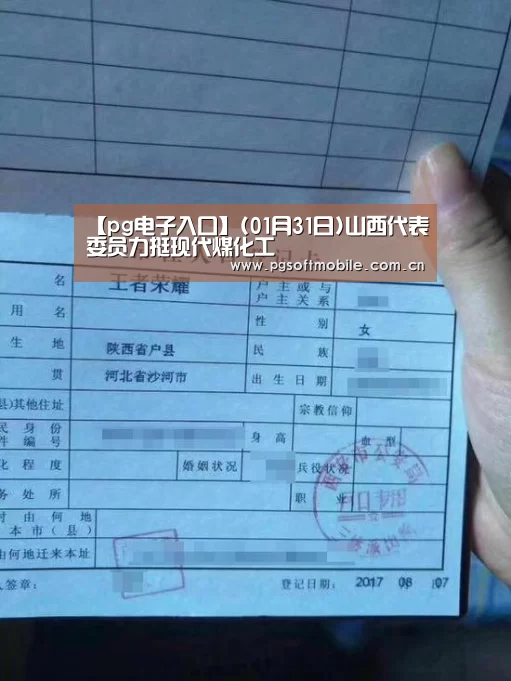 【pg电子入口】(01月31日)山西代表
委员力挺现代煤化工
www.pgsoftmobile.com.cn
记卡
名 王者荣耀 户主或与
户主关系
用名 性别 女
生地 陕西省户县 民族
贯 河北省沙河市 出生日期
县)其他住址 宗教信仰
民身份
件编号 身高 血型
化程度 婚姻状况 兵役状况
务处所 职业
时由何地
本市(县)
由何地迁来本址
人签章: 登记日期: 2017 08 07
西安市公安局